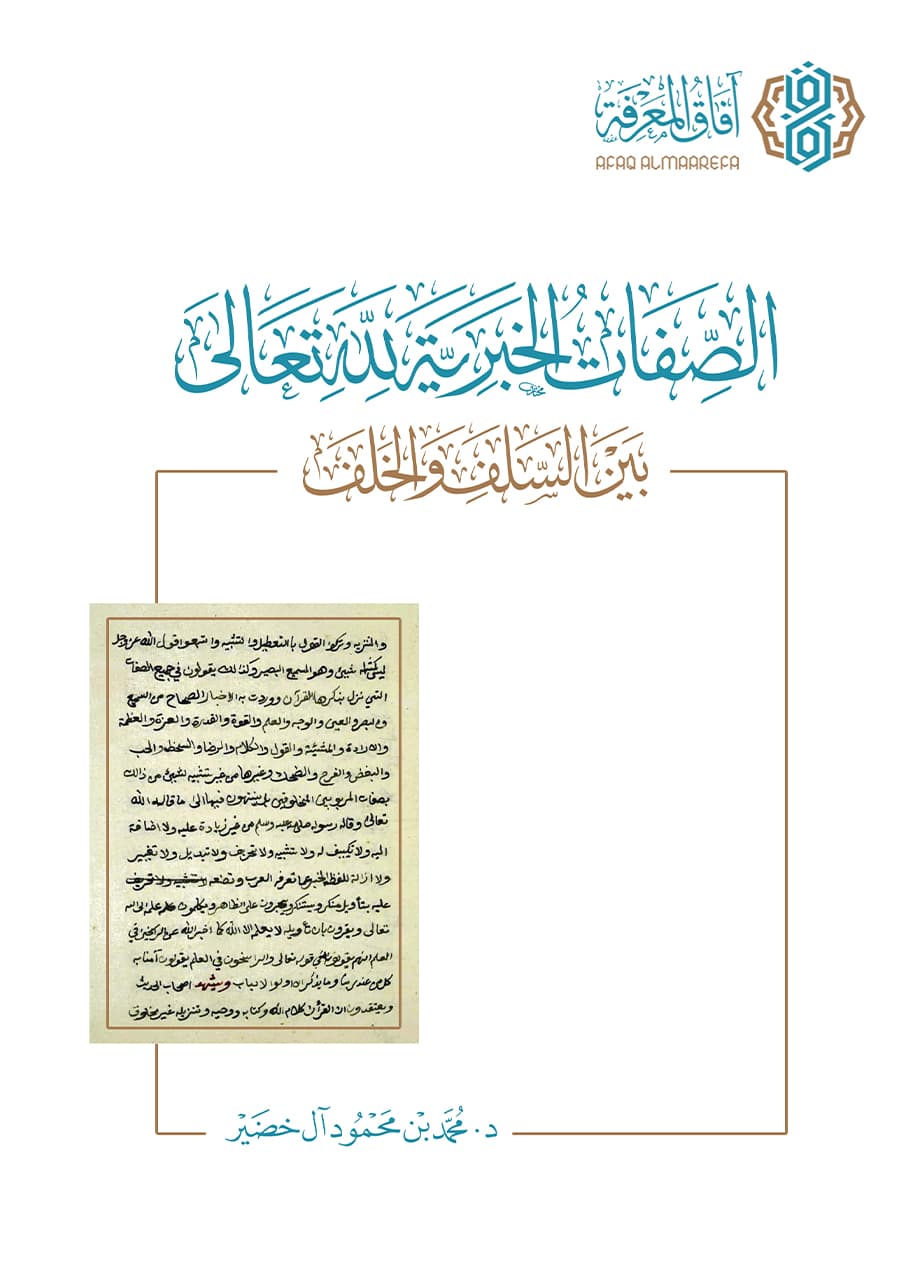 آفاق المعرفة
AFAQ ALMAAREFA
الصِّفَاتُ الخَبَرِيَّة لِلَّهِ تَعَالَى
بَيْنَ السَّلَفِ وَالخَلَف
والتنزيه وتركوا القول بالتعطيل والتشبيه واتبعوا قول الله عز وجل
ليس كمثله شيئ وهو السميع البصير وكذلك يقولون في جميع الصفات
التي نزل بذكرها القرآن ووردت به الاخبار الصحاح من السمع
والبصر والعين والوجه والعلم والقوة والقدرة والعزة والعظمة
والارادة والمشيئة والقول والكلام والرضا والسخط والحب
والبغض والفرح والضحك وغيرها من غير تشبيه لشيئ من ذالك
بصفات المربوبين المخلوقين بل ينتهون فيها الى ما قاله الله
تعالى وقاله رسوله صلى عليه وسلم من غير زيادة عليه ولا اضافة
اليه ولا تكييف له ولا تشبيه ولا تحريف ولا تبديل ولا تغيير
ولا ازالة للفظ الخبر عما تعرفه العرب وتضعه ولا تشبيه ولا تحريف
عليه بتأويل منكر ويستنكر ويجرون على الظاهر ويكلون علمه الى الله
تعالى ويقرون بان تأويله لا يعلمه الا الله كما اخبر الله عن الراسخين في
العلم انهم يقولون في قوله تعالى والراسخون في العلم يقولون آمنا به
كل من عند ربنا وما يذكر الا اولوا الالباب ويشهد اصحاب الحديث
ويعتقدون ان القرآن كلام الله وكتابه ووحيه وتنزيله غير مخلوق
د. مُحَمَّد بْن مَحْمُود آل خضَيْر